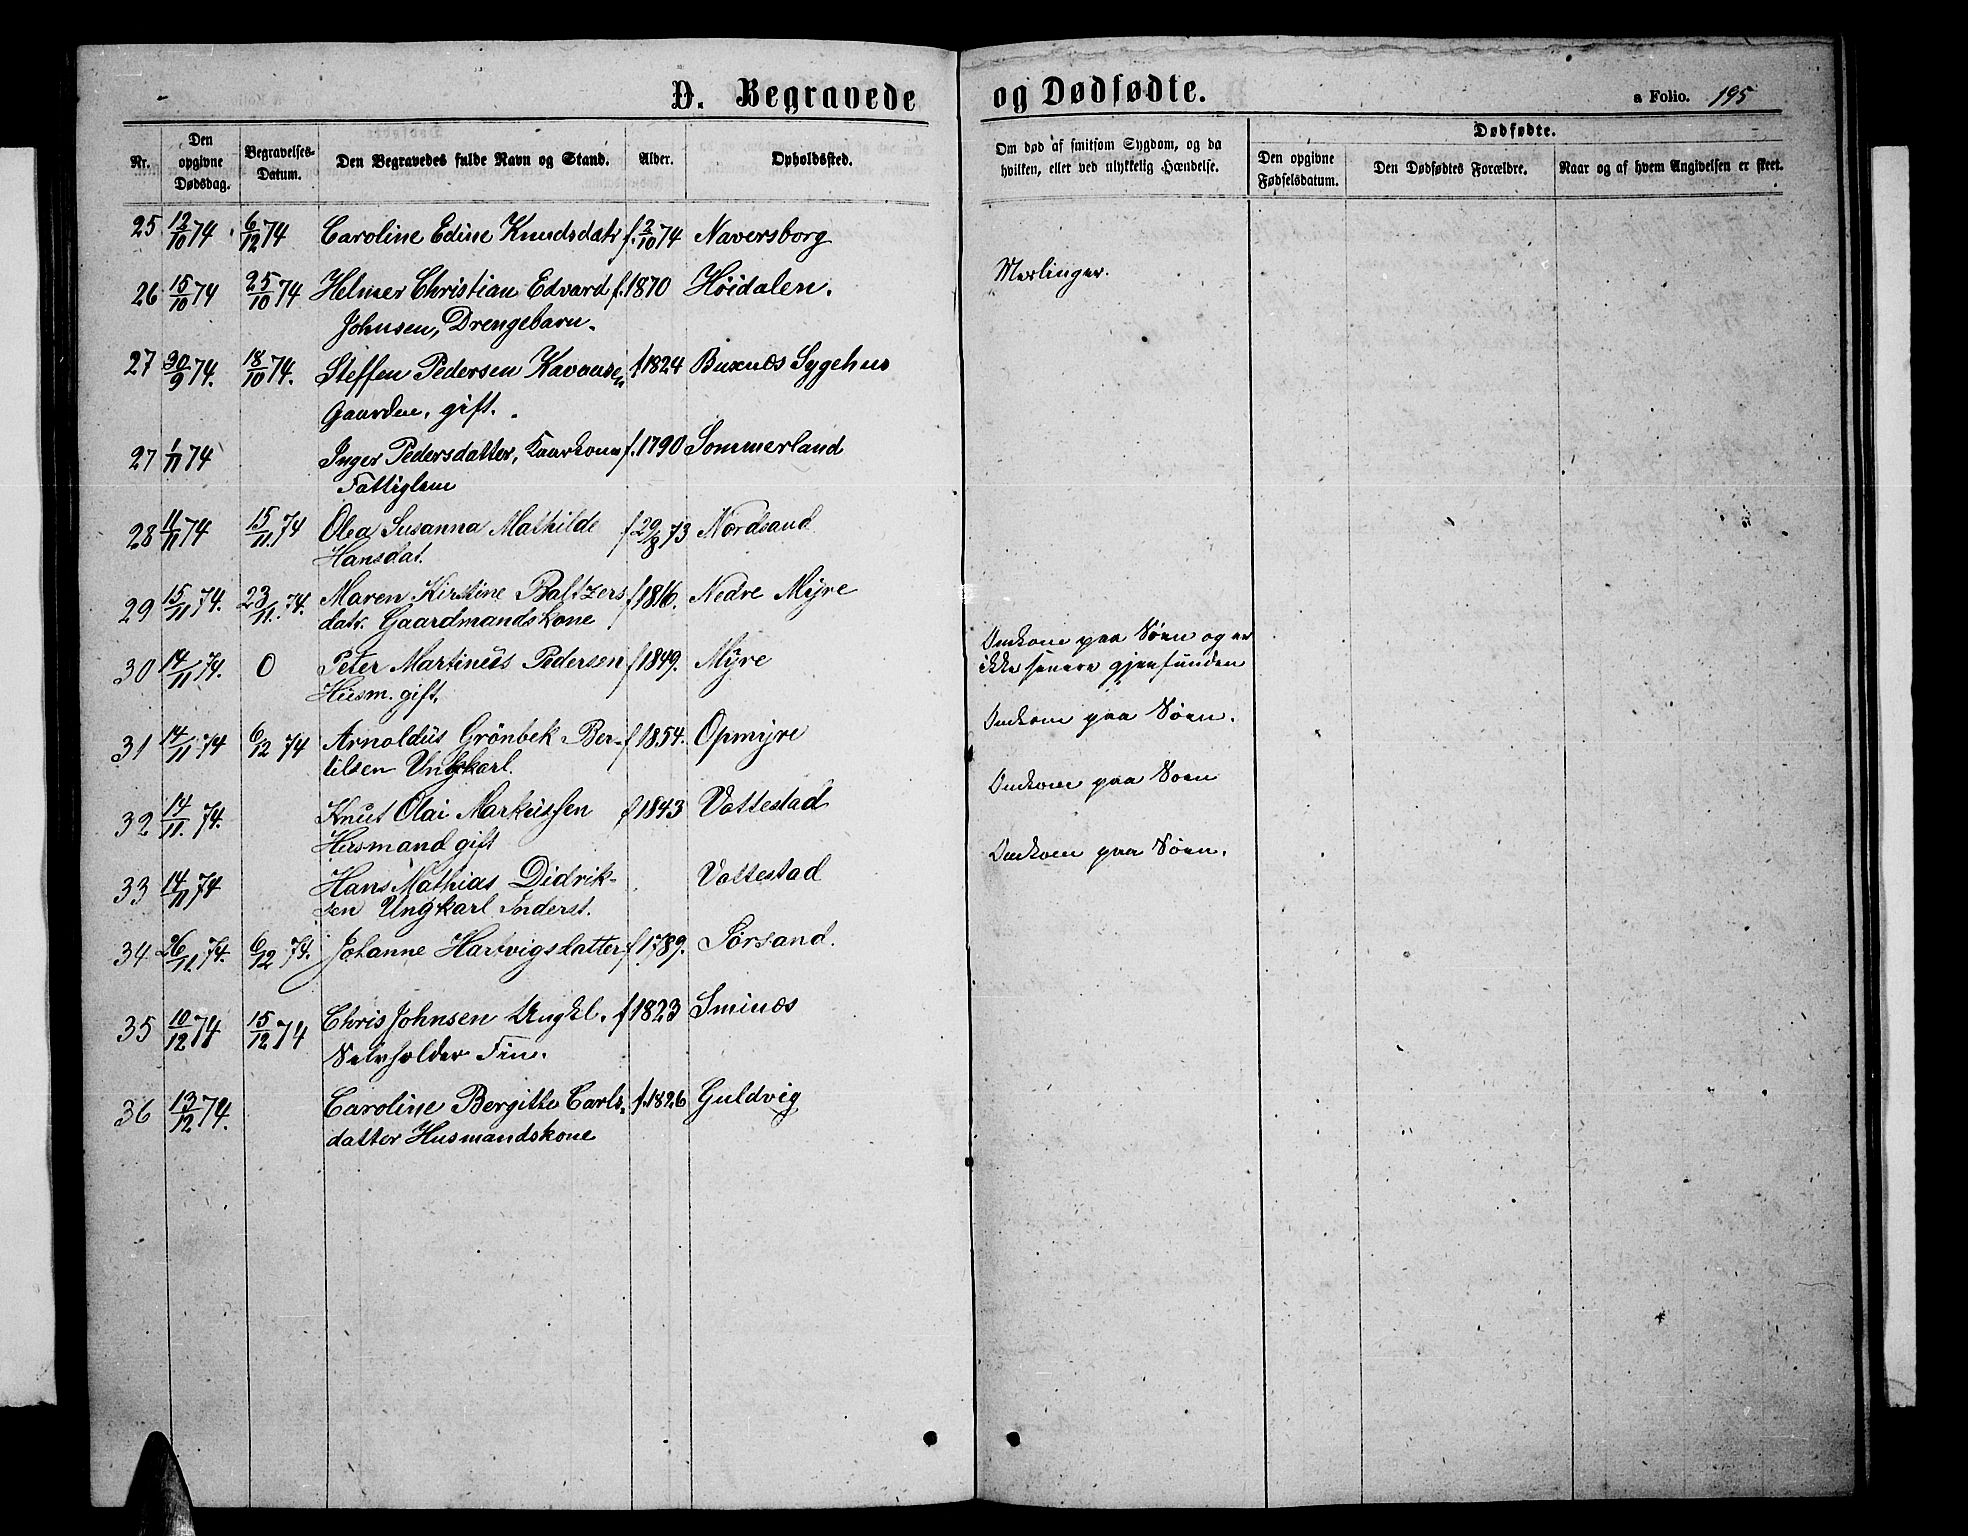 D. Begravede og Dødfødte.
a Folio. 195
Nr.
Den opgivne Dødsdag.
Begravelses-Datum.
Den Begravedes fulde Navn og Stand.
Alder.
Opholdssted.
Om død af smitsom Sygdom, og da hvilken, eller ved ulykkelig Hændelse.
Dødfødte.
Den opgivne Fødselsdatum.
Den Dødfødtes Forældre.
Naar og af hvem Angivelsen er skeet.
25 12/10 74 6/12 74 Caroline Edine Knudsdatr f. 2/10 74 Naversborg
26 15/10 74 25/10 74 Helmer Christian Edvard f. 1870 Höidalen.
Johnsen, Drengebarn.
27 30/9 74. 18/10 74. Steffen Pedersen f 1824 Buxnæs Sygehus
gift.
27 1/11 74 Inger Pedersdatter, f. 1790 Sommerland
Fattiglem
28 11/11 74 15/11. 74 Olea Susanna Mathilde f 29/8 73 Nordsand
Hansdat.
29 15/11 74. 23/11. 74. Maren Kirstine Baltzers f 1816. Nedre Myre
datr. Gaardmandskone
30 14/11 74. 0 Peter Martinus Pedersen f 1849. Myre Omkom paa Söen og er
Husm. gift. ikke senere gjenfunden
31 14/11 74 6/12 74 Arnoldus Grönbek Ber- f 1854. Opmyre Omkom paa Söen.
tilsen Ungkarl.
32 14/11. 74. Knut Olai Markussen f 1843 Vottestad Omkom paa Söen
Husmand gift
33 14/11 74 Hans Mathias Didrik- Vottestad Omkom paa Söen.
sen Ungkarl Inderst.
34 26/11. 74. 6/12 74. Johanne Hartvigsdatter f 1789. Sörsand.
35 10/12 74 15/12 74 Chris Johnsen Ungkl. f 1823 Sminæs
Selvholder Fin.
36 13/12 74. Caroline Bergitte Carls- f. 1826 Guldvig
datter Husmandskone